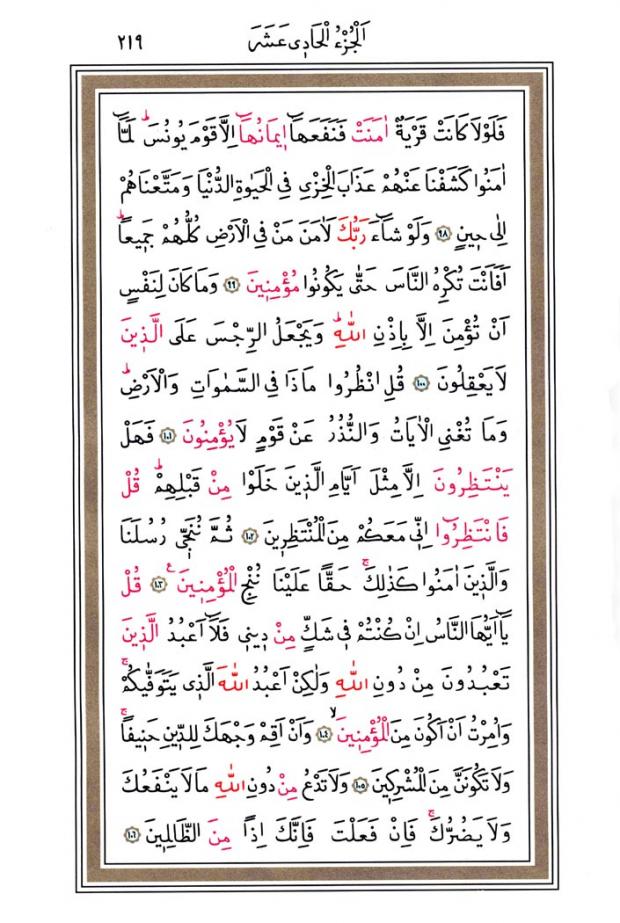 اَلْجُزْءُ الْحَاد۪ى عَشَرَ ٢١٩
فَلَوْلَا كَانَتْ قَرْيَةٌ اٰمَنَتْ فَنَفَعَهَٓا ا۪يمَانُهَٓا اِلَّا قَوْمَ يُونُسَۜ لَمَّٓا
اٰمَنُوا كَشَفْنَا عَنْهُمْ عَذَابَ الْخِزْىِ فِى الْحَيٰوةِ الدُّنْيَا وَمَتَّعْنَاهُمْ
اِلٰى ح۪ينٍ ٩٨ وَلَوْ شَٓاءَ رَبُّكَ لَاٰمَنَ مَنْ فِى الْاَرْضِ كُلُّهُمْ جَم۪يعًاۜ
اَفَاَنْتَ تُكْرِهُ النَّاسَ حَتّٰى يَكُونُوا مُؤْمِن۪ينَ ٩٩ وَمَا كَانَ لِنَفْسٍ
اَنْ تُؤْمِنَ اِلَّا بِاِذْنِ اللّٰهِۜ وَيَجْعَلُ الرِّجْسَ عَلَى الَّذ۪ينَ
لَا يَعْقِلُونَ ١٠٠ قُلِ انْظُرُوا مَاذَا فِى السَّمٰوَاتِ وَالْاَرْضِۜ
وَمَا تُغْنِى الْاٰيَاتُ وَالنُّذُرُ عَنْ قَوْمٍ لَا يُؤْمِنُونَ ١٠١ فَهَلْ
يَنْتَظِرُونَ اِلَّا مِثْلَ اَيَّامِ الَّذ۪ينَ خَلَوْا مِنْ قَبْلِهِمْۜ قُلْ
فَانْتَظِرُٓوا اِنّ۪ى مَعَكُمْ مِنَ الْمُنْتَظِر۪ينَ ١٠٢ ثُمَّ نُنَجّ۪ى رُسُلَنَا
وَالَّذ۪ينَ اٰمَنُوا كَذٰلِكَۚ حَقًّا عَلَيْنَا نُنْجِ الْمُؤْمِن۪ينَ۟ ١٠٣ قُلْ
يَٓا اَيُّهَا النَّاسُ اِنْ كُنْتُمْ ف۪ى شَكٍّ مِنْ د۪ين۪ى فَلَٓا اَعْبُدُ الَّذ۪ينَ
تَعْبُدُونَ مِنْ دُونِ اللّٰهِ وَلٰكِنْ اَعْبُدُ اللّٰهَ الَّذ۪ى يَتَوَفّٰيكُمْۚ
وَاُمِرْتُ اَنْ اَكُونَ مِنَ الْمُؤْمِن۪ينَۙ ١٠٤ وَاَنْ اَقِمْ وَجْهَكَ لِلدّ۪ينِ حَن۪يفًاۚ
وَلَا تَكُونَنَّ مِنَ الْمُشْرِك۪ينَ ١٠٥ وَلَا تَدْعُ مِنْ دُونِ اللّٰهِ مَا لَا يَنْفَعُكَ
وَلَا يَضُرُّكَۚ فَاِنْ فَعَلْتَ فَاِنَّكَ اِذًا مِنَ الظَّالِم۪ينَ ١٠٦